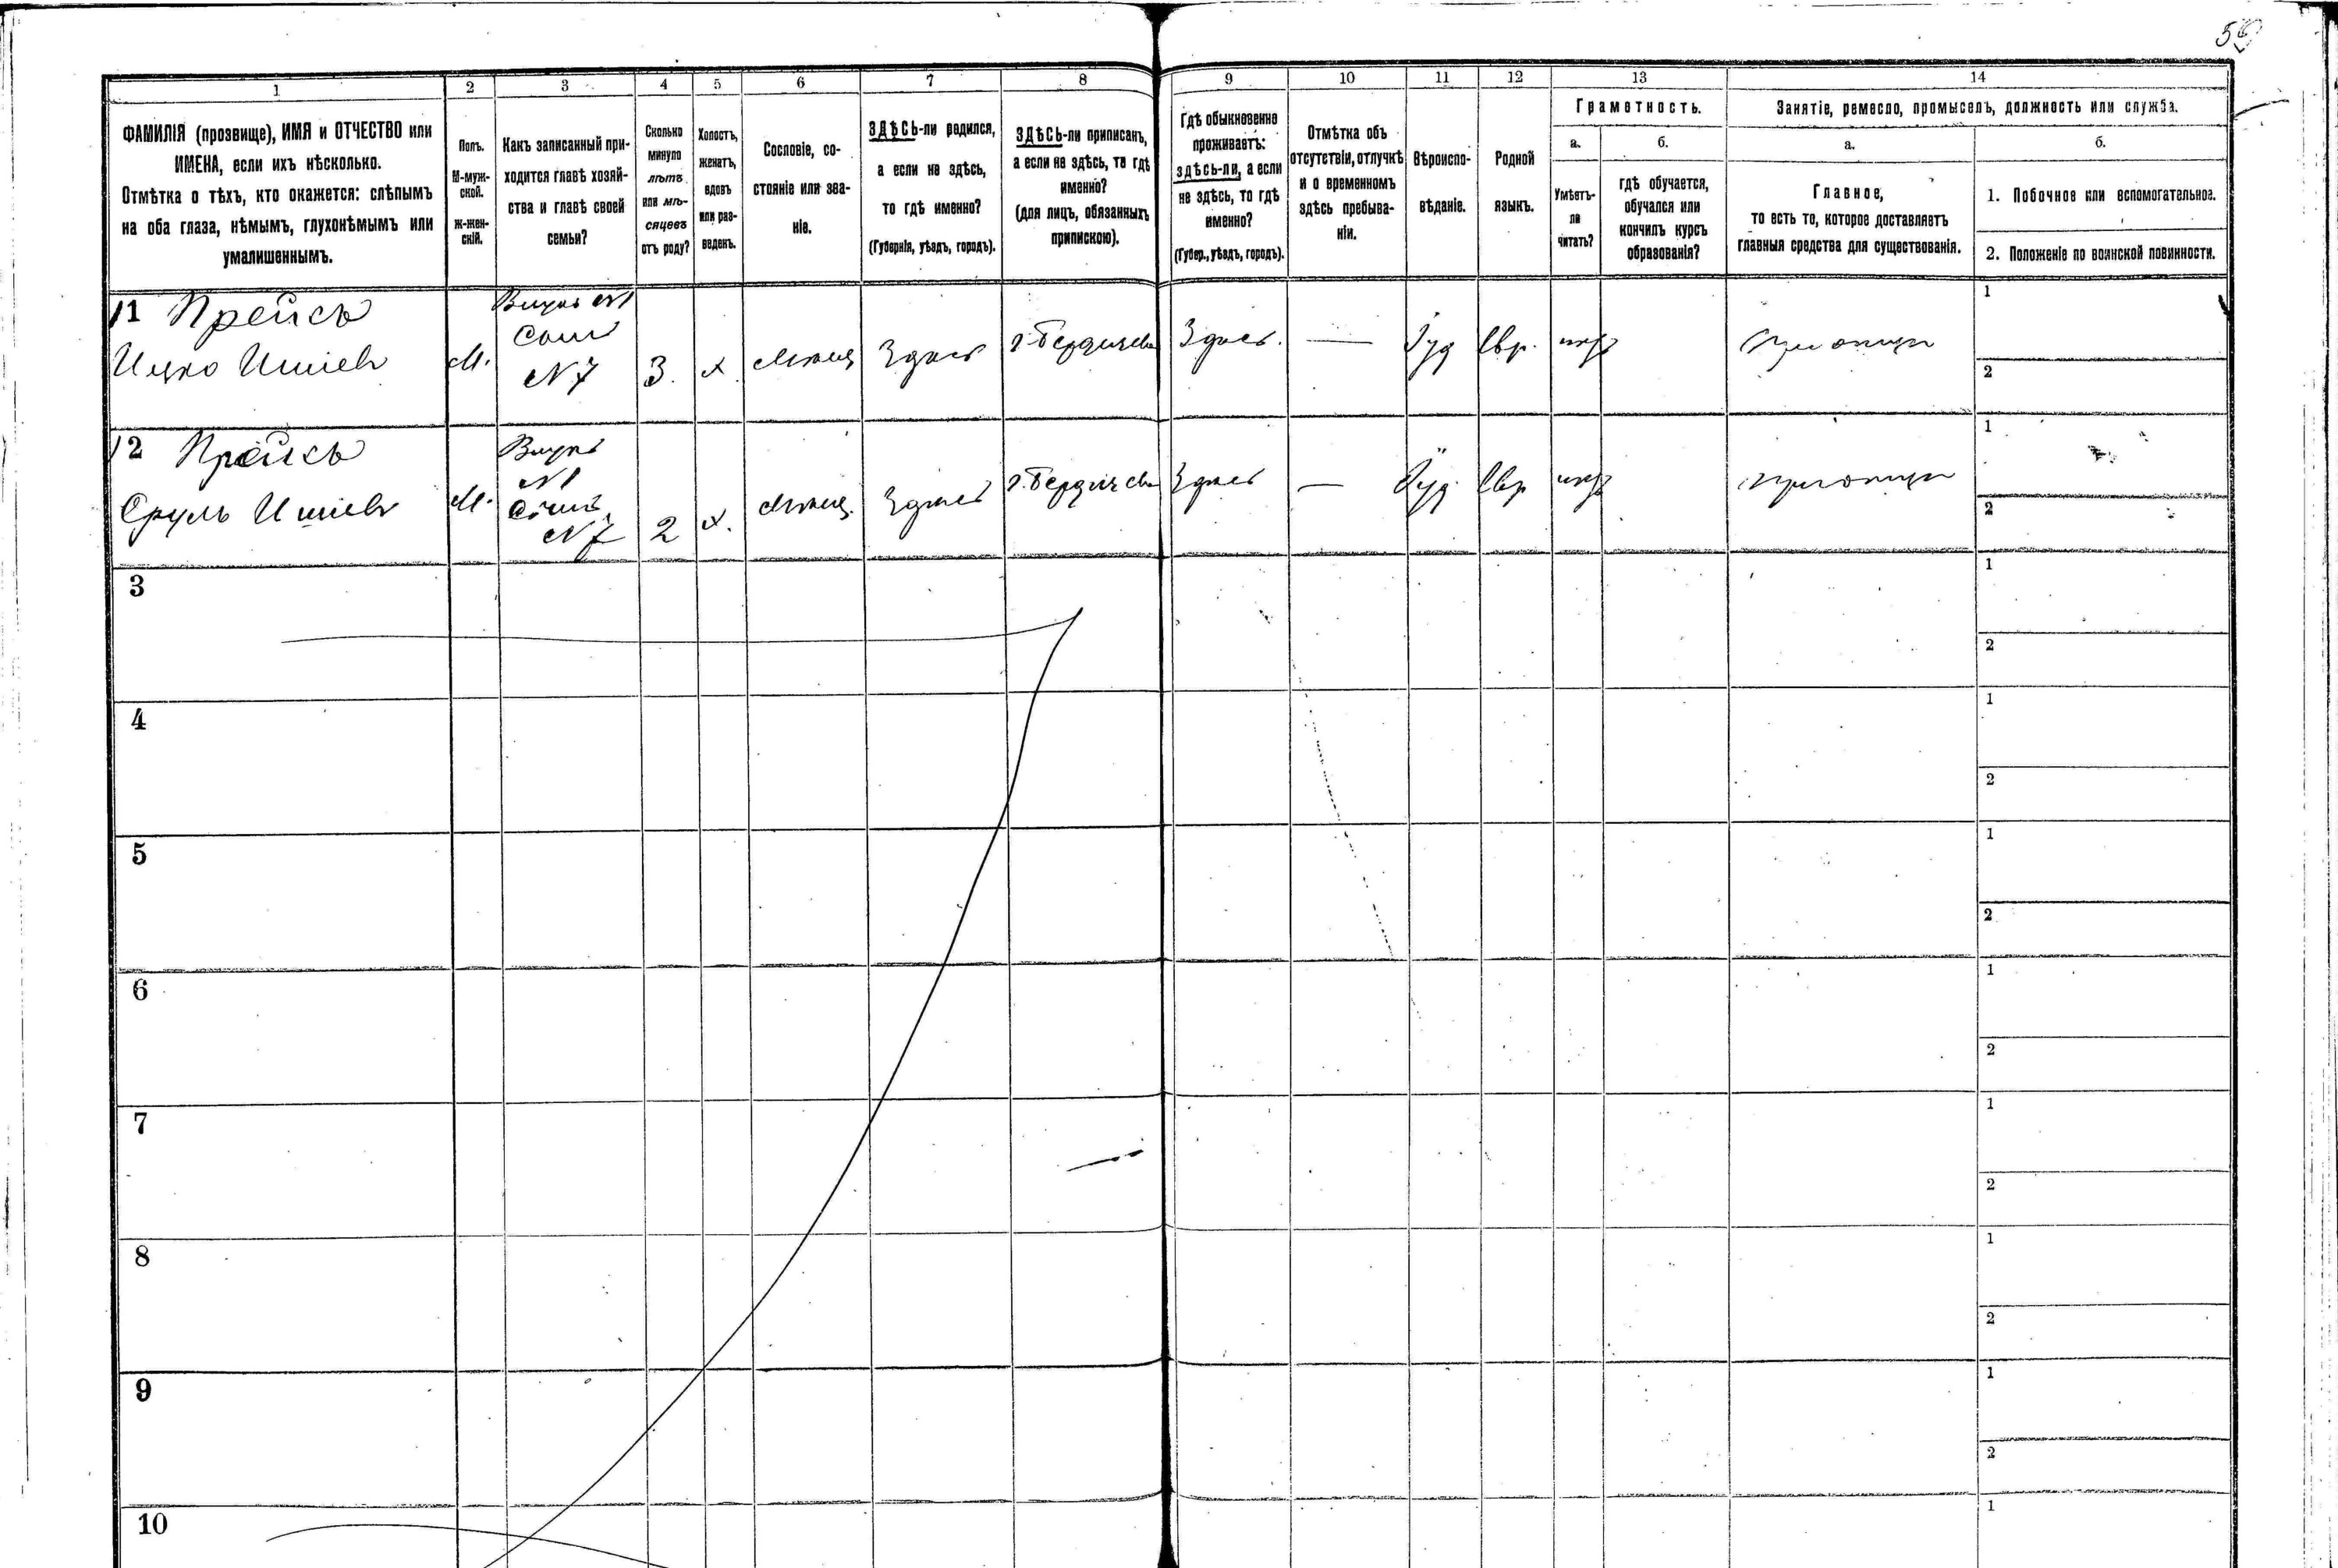 1
2
3
4
5
6
7
8
9
10
11
12
13
14
ФАМИЛІЯ (прозвище), ИМЯ и ОТЧЕСТВО или
ИМЕНА, если ихъ нѣсколько.
Отмѣтка о тѣхъ, кто окажется: слѣпымъ
на оба глаза, нѣмымъ, глухонѣмымъ или
умалишеннымъ.
Полъ.
М-муж-
ской.
ж-жен-
скій.
Какъ записанный при-
ходится главѣ хозяй-
ства и главѣ своей
семьи?
Сколько
минуло
лѣтъ
или мѣ-
сяцевъ
отъ роду?
Холостъ,
женатъ,
вдовъ
или раз-
веденъ.
Сословіе, со-
стояніе или зва-
ніе.
ЗДѢСЬ-ли родился,
а если не здѣсь,
то гдѣ именно?
(Губернія, уѣздъ, городъ).
ЗДѢСЬ-ли приписанъ,
а если не здѣсь, то гдѣ
именно?
(для лицъ, обязанныхъ
припискою).
Гдѣ обыкновенно
проживаетъ:
здѣсь-ли, а если
не здѣсь, то гдѣ
именно?
(Губер., уѣздъ, городъ).
Отмѣтка объ
отсутствіи, отлучкѣ
и о временномъ
здѣсь пребыва-
ніи.
Вѣроиспо-
вѣданіе.
Родной
языкъ.
Грамотность.
а.
Умѣетъ-
ли
читать?
б.
гдѣ обучается,
обучался или
кончилъ курсъ
образованія?
Занятіе, ремесло, промыселъ, должность или служба.
а.
Главное,
то есть то, которое доставляетъ
главныя средства для существованія.
б.
1. Побочное или вспомогательное.
2. Положеніе по воинской повинности.
11 Прейсъ
Ицко Ишіев
М.
Внукъ №1
Сынъ
№7
3.
х.
Мѣщ
Здѣсь
г. Бердичева
Здѣсь.
—
Іуд
Евр.
1
2
12 Прейсъ
Сруль Ишіев
М.
Внукъ
№1
Сынъ
№7
2
х.
Мѣщ.
Здѣсь
г. Бердичева
Здѣсь
—
Іуд.
Евр
1
2
3
1
2
4
1
2
5
1
2
6
1
2
7
1
2
8
1
2
9
1
2
10
1